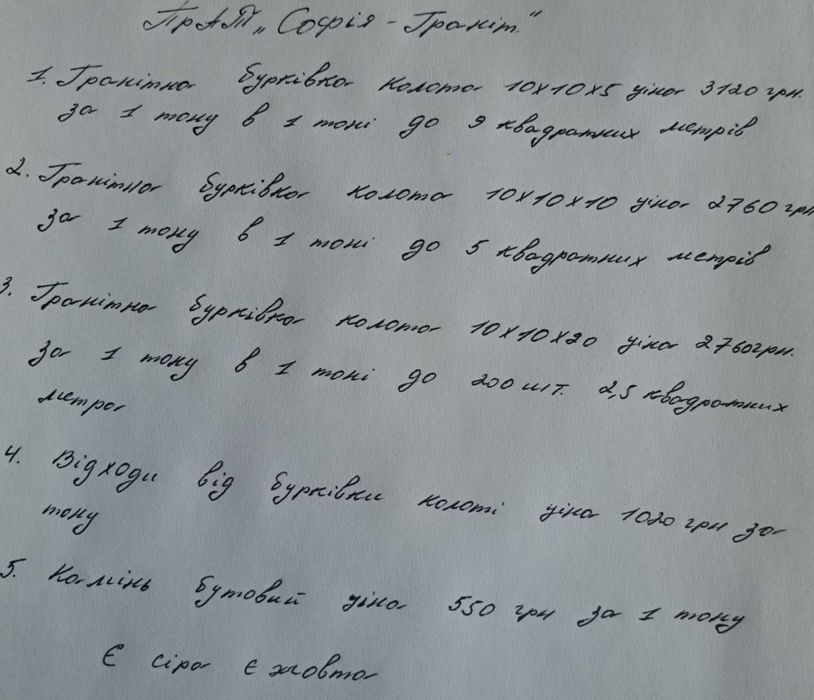 ПрАТ „Софія - Граніт"
1. Гранітна бурківка колота 10х10х5 ціна 3120 грн.
за 1 тону в 1 тоні до 9 квадратних метрів
2. Гранітна бурківка колота 10х10х10 ціна 2760 грн
за 1 тону в 1 тоні до 5 квадратних метрів
3. Гранітна бурківка колота 10х10х20 ціна 2760грн.
за 1 тону в 1 тоні до 200 шт. 2,5 квадратних
метра
4. Відходи від бурківки колоті ціна 1020 грн за
тону
5. Камінь бутовий ціна 550 грн за 1 тону
Є сіра є жовта